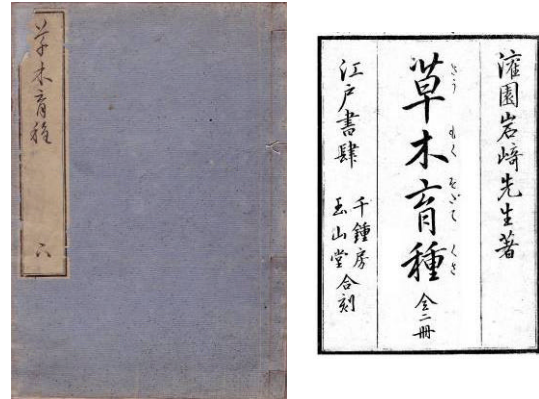 草木育種
六
灌園岩﨑先生著
草木育種 全二冊
さう もく そだて くさ
江戸書肆
千鍾房
玉山堂 合刻